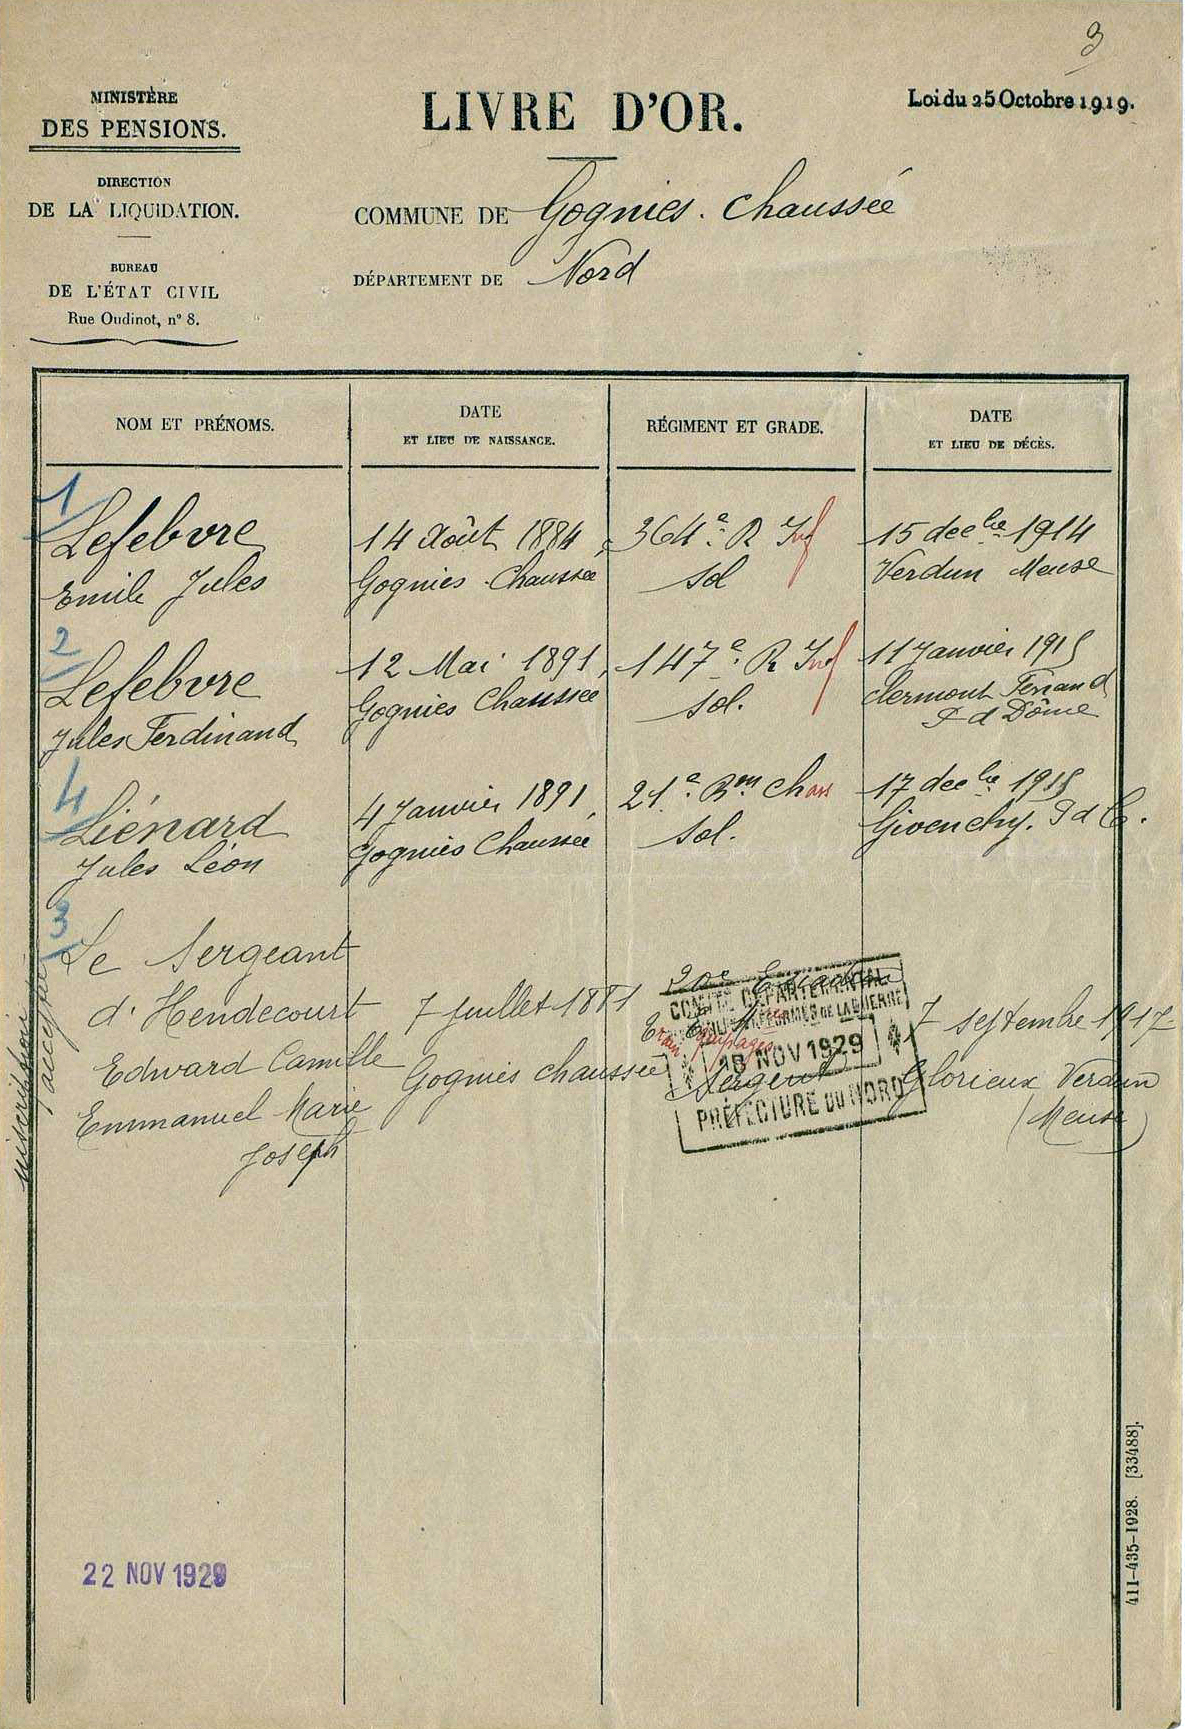 3
MINISTÈRE
DES PENSIONS.
DIRECTION
DE LA LIQUIDATION.
BUREAU
DE L'ÉTAT CIVIL
Rue Oudinot, n° 8.
LIVRE D'OR.
Loi du 25 Octobre 1919.
COMMUNE DE Gognies. Chaussée
DÉPARTEMENT DE Nord
NOM ET PRÉNOMS.
DATE
ET LIEU DE NAISSANCE.
RÉGIMENT ET GRADE.
DATE
ET LIEU DE DÉCÈS.
1
Lefebvre
Emile Jules
14 Août 1884
Gognies-Chaussée
364e R Inf
sol
15 decbre 1914
Verdun Meuse
2
Lefebvre
Jules Ferdinand
12 Mai 1891
Gognies Chaussée
147e R Inf
sol.
11 Janvier 1915
Clermont Ferrand
P d Dôme
4
Liénard
Jules Léon
4 Janvier 1891
Gognies Chaussée
21e Bon Chars
sol.
17 decbre 1915
Givenchy. P d C.
3
Le Sergeant
d'Hendecourt
Edward Camille
Emmanuel Marie
Joseph
7 juillet 1881
Gognies chaussée
20e Escadron
Train Equipages
Sergent
7 septembre 1917
Glorieux Verdun
(Meuse)
inscription
acceptée
COMITÉ DÉPARTEMENTAL
DE LA GUERRE
18 NOV 1929
PRÉFECTURE DU NORD
22 NOV 1929
411-435-1928. [33488].